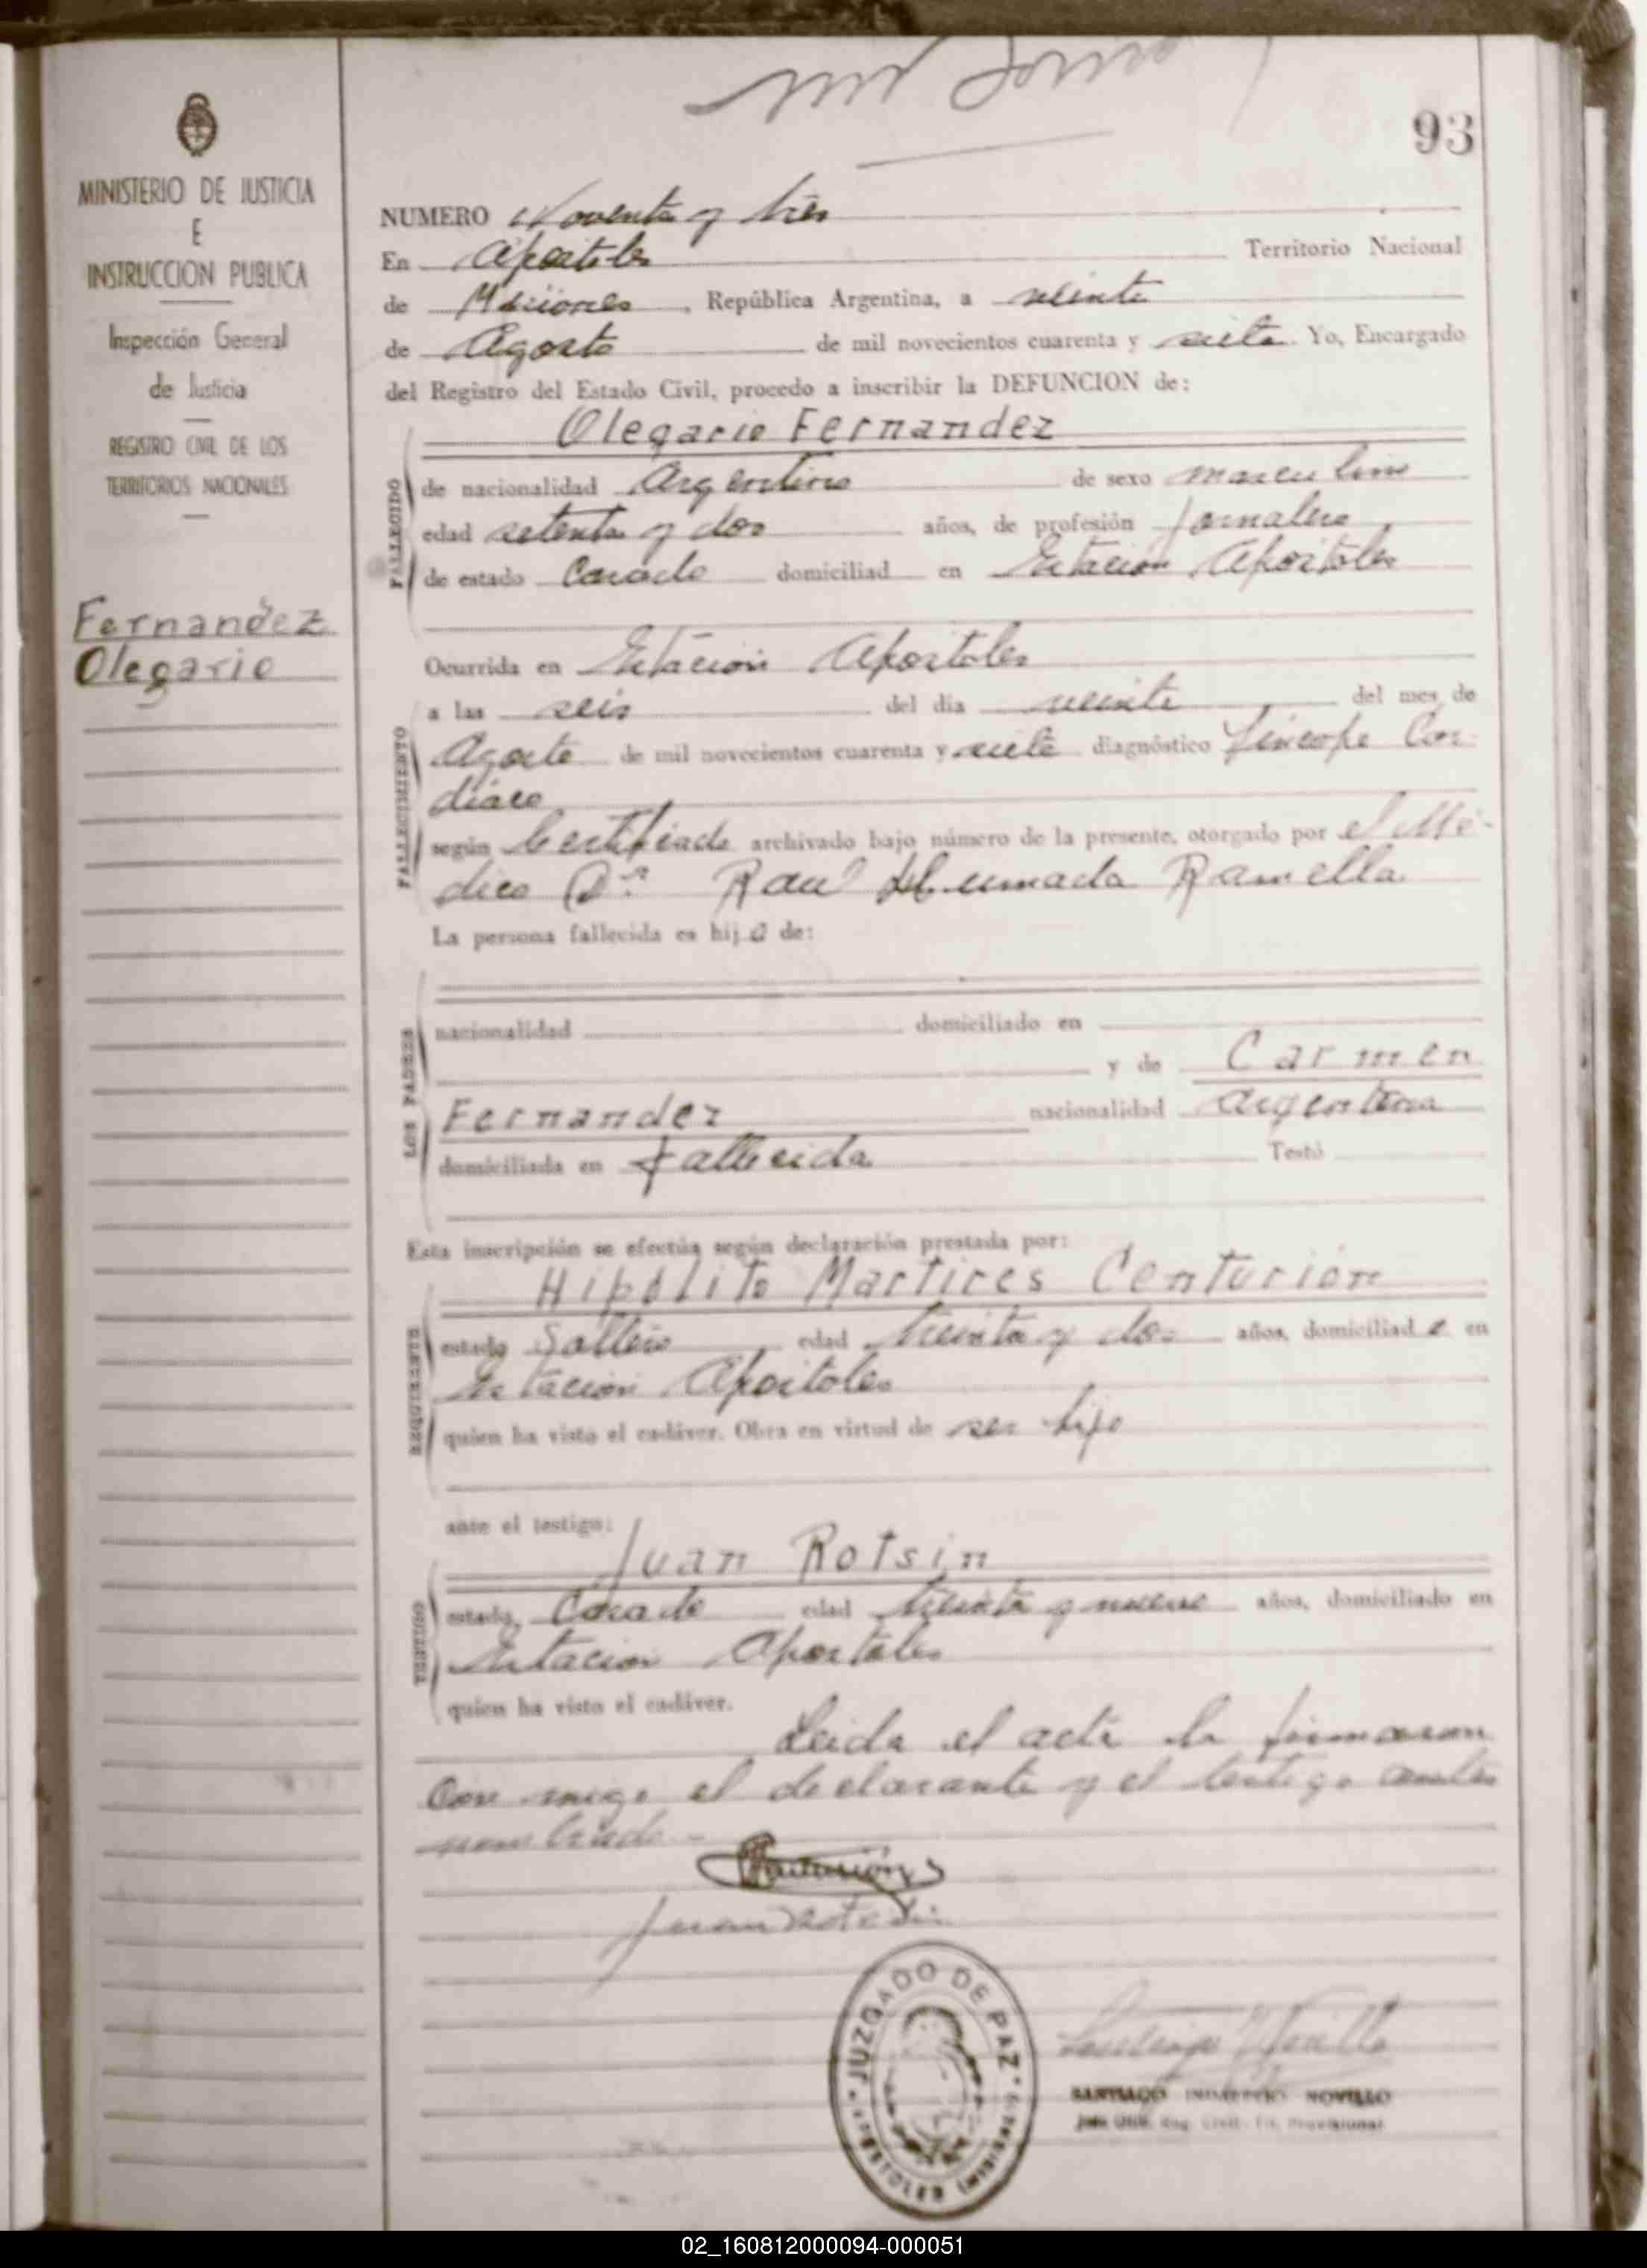 93
MINISTERIO DE JUSTICIA
E
INSTRUCCION PUBLICA
Inspección General
de Justicia
REGISTRO CIVIL DE LOS
TERRITORIOS NACIONALES
Fernandez
Olegario
NUMERO Noventa y tres
En Apostoles Territorio Nacional
de Misiones, República Argentina, a veinte
de Agosto de mil novecientos cuarenta y siete. Yo, Encargado
del Registro del Estado Civil, procedo a inscribir la DEFUNCION de:
Olegario Fernandez
FALLECIDO
de nacionalidad Argentino de sexo masculino
edad setenta y dos años, de profesión Jornalero
de estado Casado domiciliad en Estación Apostoles
FALLECIMIENTO
Ocurrida en Estación Apostoles
a las seis del día veinte del mes de
Agosto de mil novecientos cuarenta y siete diagnóstico Síncope Car-
díaco
según Certificado archivado bajo número de la presente, otorgado por el Mé-
dico Dr. Raul Ahumada Ramella
La persona fallecida es hijo de:
LOS PADRES
nacionalidad domiciliado en
y de Carmen
Fernandez nacionalidad argentina
domiciliada en fallecida Testó
Esta inscripción se efectúa según declaración prestada por:
Hipólito Martires Centurión
REQUIRENTE
estado Soltero edad treinta y dos años, domiciliado en
Estación Apostoles
quien ha visto el cadáver. Obra en virtud de ser hijo
ante el testigo:
Juan Rotsin
TESTIGO
estado, Casado edad treinta y nueve años, domiciliado en
Estacion Apostoles
quien ha visto el cadáver.
Leida el acta la firmaron
con migo el declarante y el testigo antes
nombrado.-
Centurión
Juan Rotsin
JUZGADO DE PAZ
APOSTOLES (MISIONES)
SANTIAGO INDALECIO NOVILLO
02_160812000094-000051